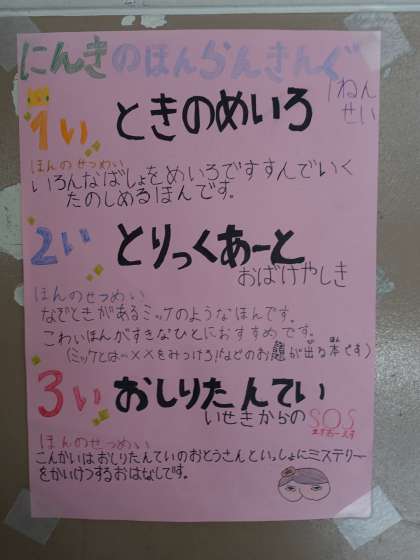 にんきのほんらんきんぐ
1ねん
せい
1い ときのめいろ
ほんのせつめい
いろんなばしょをめいろですすんでいく
たのしめるほんです。
2い とりっくあーと
おばけやしき
ほんのせつめい
なぞときがあるミッケのようなほんです。
こわいほんがすきなひとにおすすめです。
(ミッケとは…××をみつけろ!などのお題が出る本です)
3い おしりたんてい
いせきからのSOS
えすおーえす
ほんのせつめい
こんかいはおしりたんていのおとうさんといっしょにミステリー
をかいけつするおはなしです。